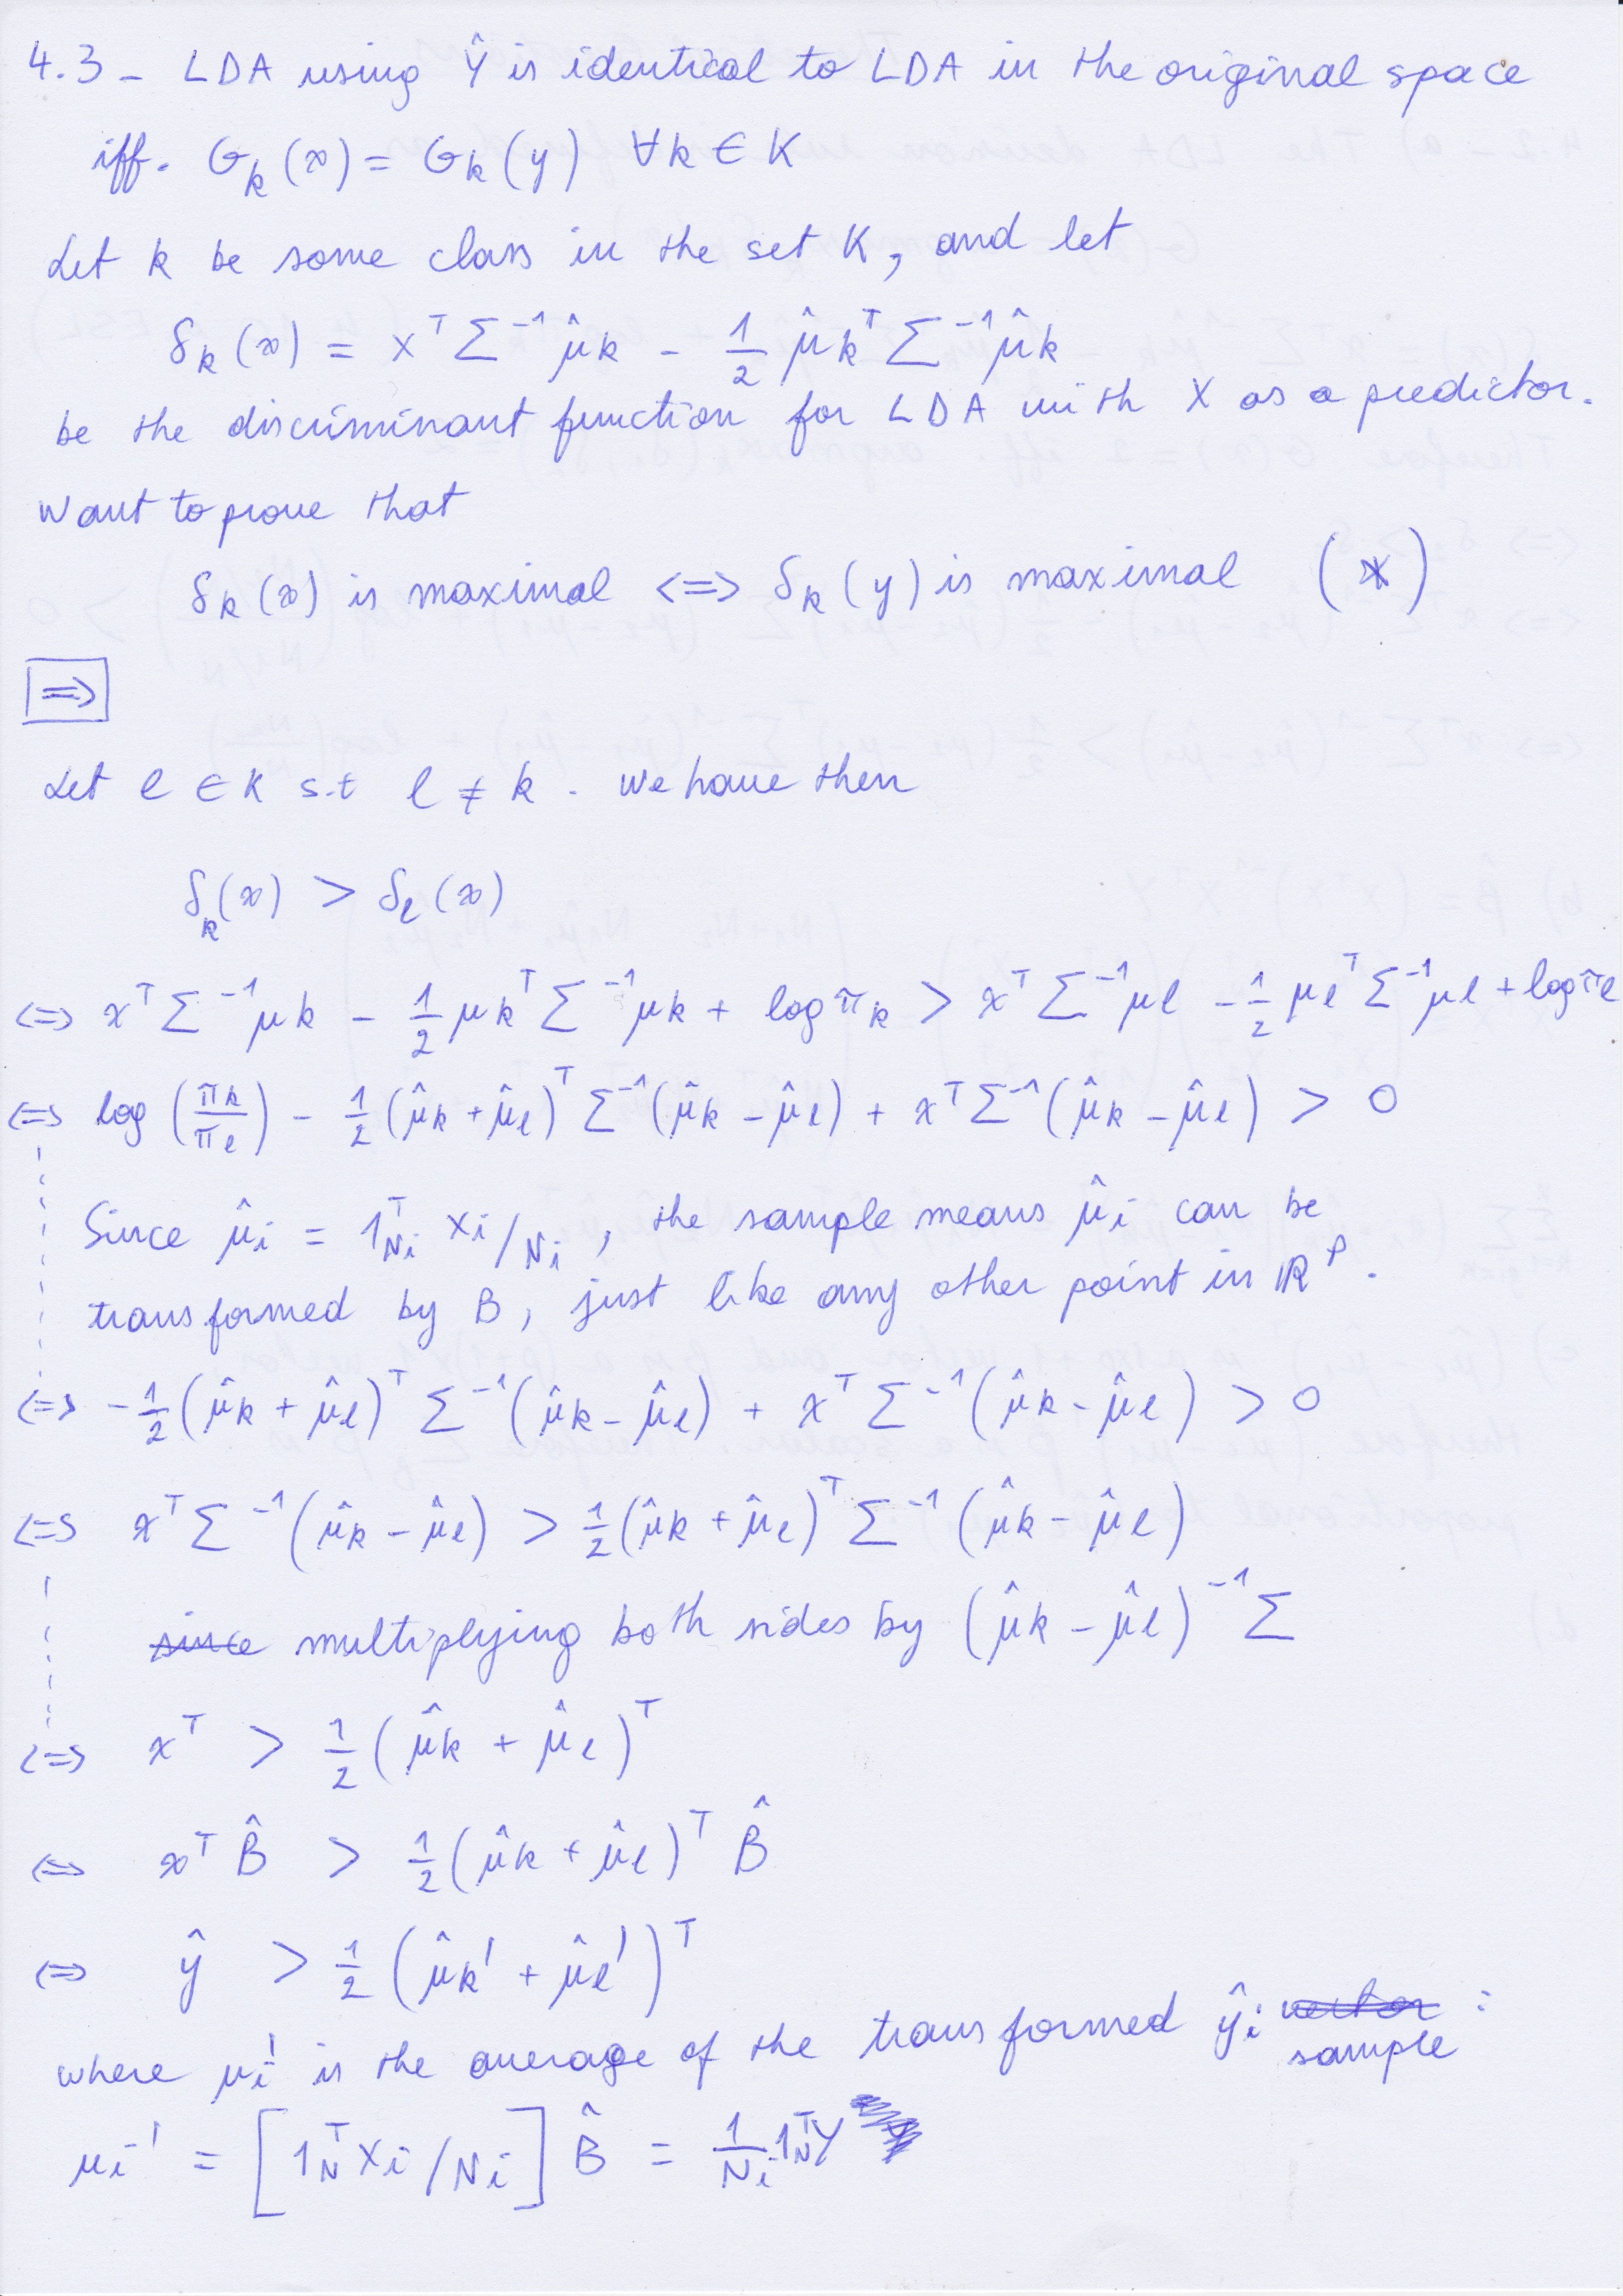 4.3 - LDA using Ŷ is identical to LDA in the original space
iff. G_k(x) = G_k(y) ∀k ∈ K
Let k be some class in the set K, and let
δ_k(x) = x^T Σ^-1 μ̂k - 1/2 μ̂k^T Σ^-1 μ̂k
be the discriminant function for LDA with X as a predictor.
Want to prove that
δ_k(x) is maximal <=> δ_k(y) is maximal (*)
=>
Let l ∈ K s.t l ≠ k. We have then
δ_k(x) > δ_l(x)
<=> x^T Σ^-1 μk - 1/2 μk^T Σ^-1 μk + log π_k > x^T Σ^-1 μl - 1/2 μl^T Σ^-1 μl + log π_l
<=> log (π_k/π_l) - 1/2 (μ̂k + μ̂l)^T Σ^-1 (μ̂k - μ̂l) + x^T Σ^-1 (μ̂k - μ̂l) > 0
Since μ̂i = 1_Ni^T Xi/Ni, the sample means μ̂i can be
transformed by B, just like any other point in ℝ^p.
<=> -1/2 (μ̂k + μ̂l)^T Σ^-1 (μ̂k - μ̂l) + x^T Σ^-1 (μ̂k - μ̂l) > 0
<=> x^T Σ^-1 (μ̂k - μ̂l) > 1/2 (μ̂k + μ̂l)^T Σ^-1 (μ̂k - μ̂l)
since multiplying both sides by (μ̂k - μ̂l)^-1 Σ
<=> x^T > 1/2 (μ̂k + μ̂l)^T
<=> x^T B̂ > 1/2 (μ̂k + μ̂l)^T B̂
<=> ŷ > 1/2 (μ̂k' + μ̂l')^T
where μi' is the average of the transformed ŷi vector sample :
μi' = [1_N^T Xi/Ni] B̂ = 1/Ni 1_N^T Y